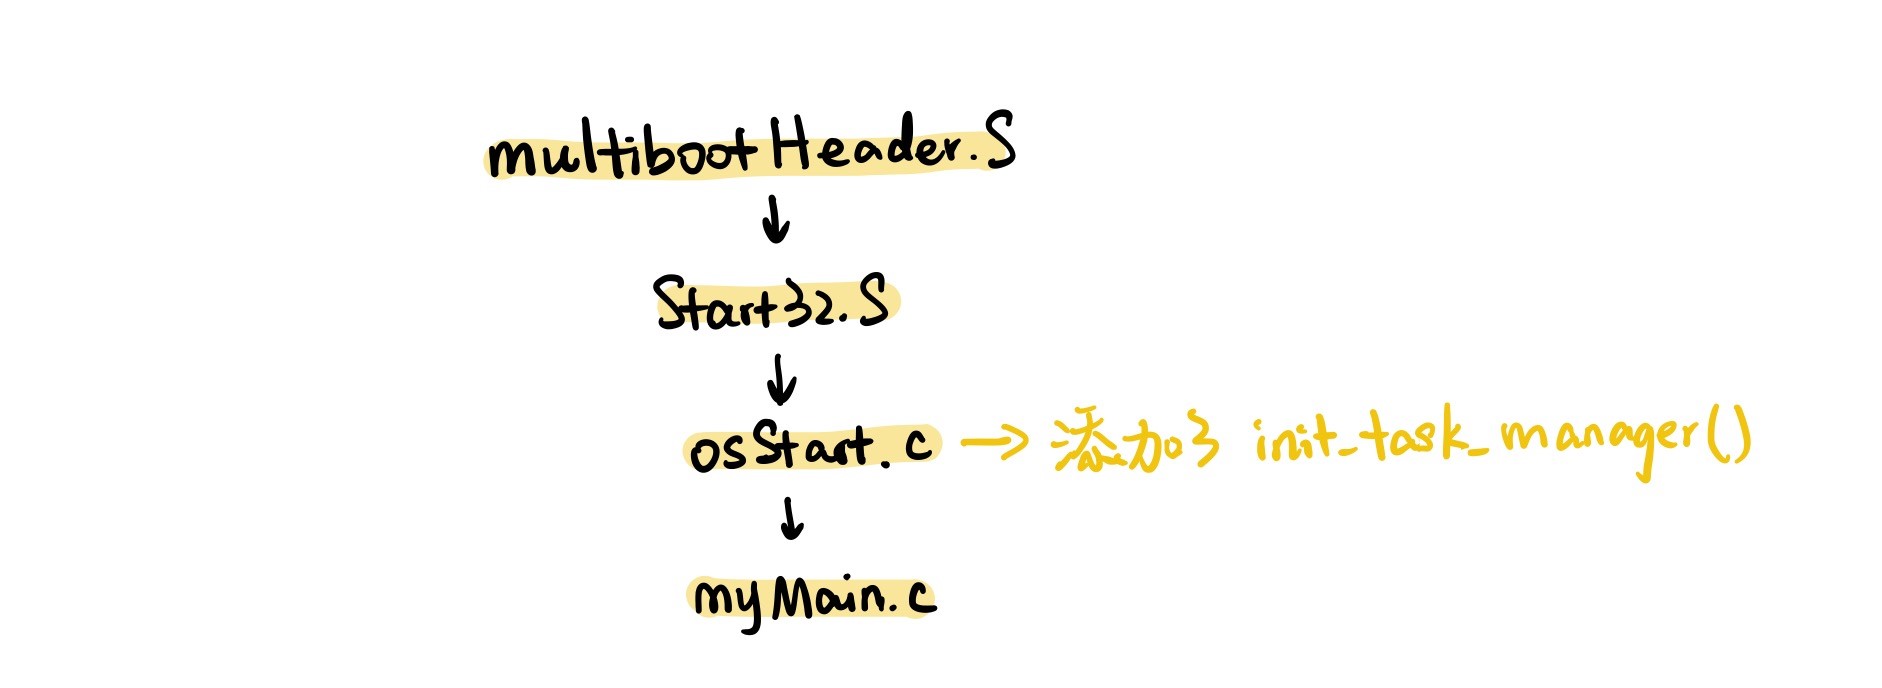 multibootHeader.S
↓
Start32.S
↓
osStart.c → 添加了 init_task_manager()
↓
myMain.c